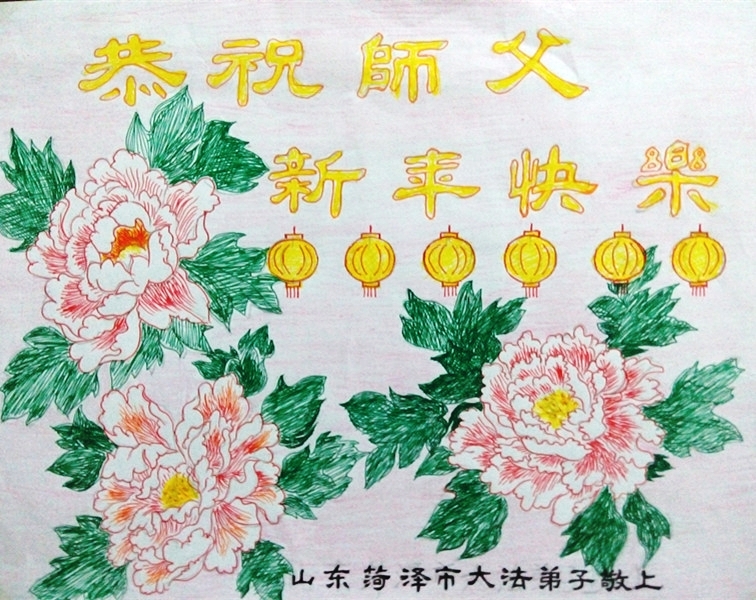 恭祝師父
新年快樂
山东菏泽市大法弟子敬上